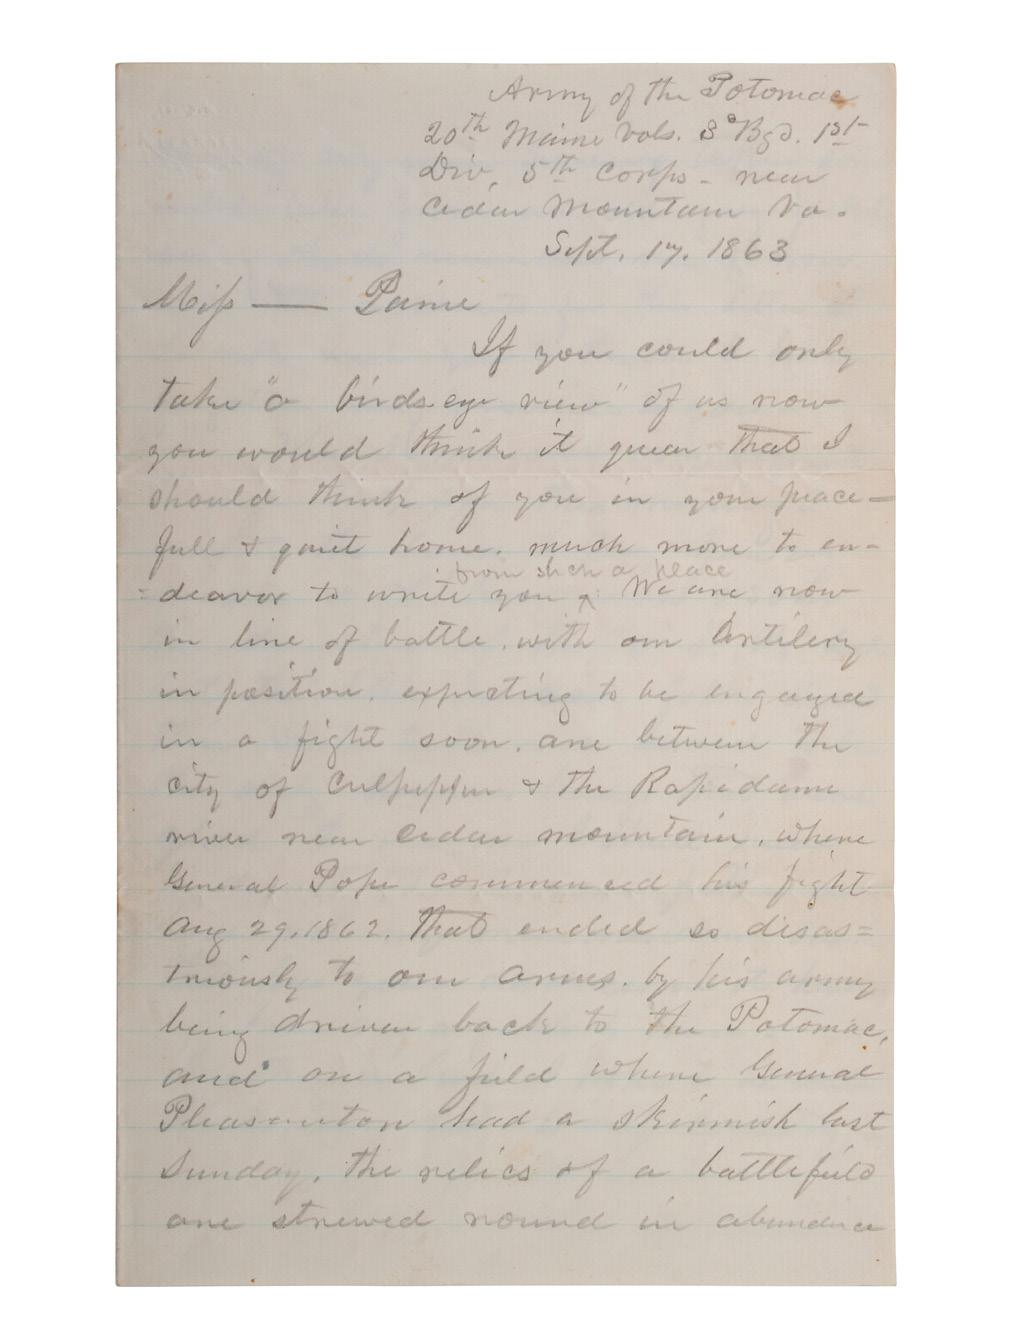 Army of the Potomac
20th Maine Vols. 3d Bgd. 1st
Div, 5th Corps - near
Cedar Mountain Va.
Sept. 17. 1863
Miss —— Paine
If you could only
take "a birds eye view" of us now
you would think it quear that I
should think of you in your peace=
full & quiet home. much more to en=
from such a place
=deavor to write you ^ We are now
in line of battle. with our Artilery
in position. expecting to be engaged
in a fight soon. are between the
city of Culpepper & the Rapidann
river near Cedar mountain. where
General Pope commenced his fight
Aug 29. 1862. that ended so disas=
triously to our arms. by his army
being driven back to the Potomac,
and on a field where General
Pleasanton had a skirmish last
Sunday. the relics of a battlefield
are strewed round in abundance